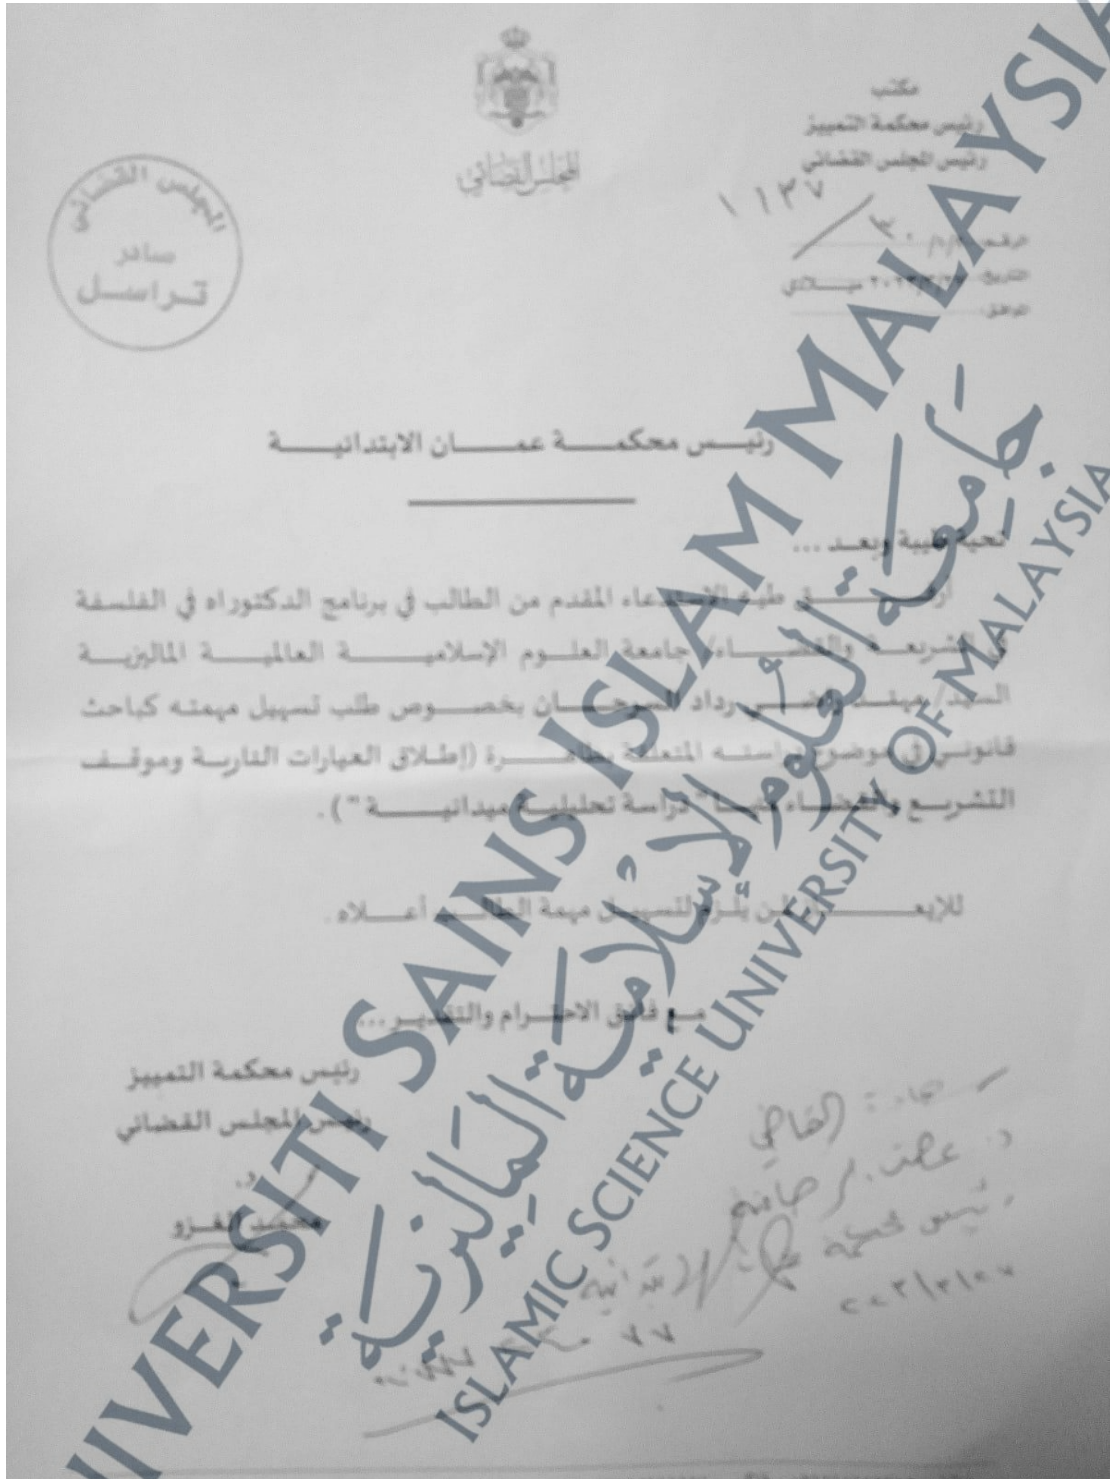 مكتب
رئيس محكمة التمييز
رئيس المجلس القضائي
المجلس القضائي
المجلس القضائي
صادر
تراسل
١١٣٧
الرقم
التاريخ ميلادي
الموافق
رئيس محكمة عمان الابتدائية
تحية طيبة وبعد ...
أرفق طيه الاستدعاء المقدم من الطالب في برنامج الدكتوراه في الفلسفة
في الشريعة والقضاء/ جامعة العلوم الإسلامية العالمية الماليزية
السيد/ مهند رداد السرحان بخصوص طلب تسهيل مهمته كباحث
قانوني في موضوع دراسته المتعلقة بظاهرة (إطلاق العيارات النارية وموقف
التشريع والقضاء منها "دراسة تحليلية ميدانية") .
للإيعاز لمن يلزم لتسهيل مهمة الطالب أعلاه .
مع فائق الاحترام والتقدير...
رئيس محكمة التمييز
رئيس المجلس القضائي
محمد الغزو
القاضي
د.
رئيس محكمة الابتدائية
UNIVERSITI SAINS ISLAM MALAYSIA
جامعة العلوم الإسلامية الماليزية
ISLAMIC SCIENCE UNIVERSITY OF MALAYSIA